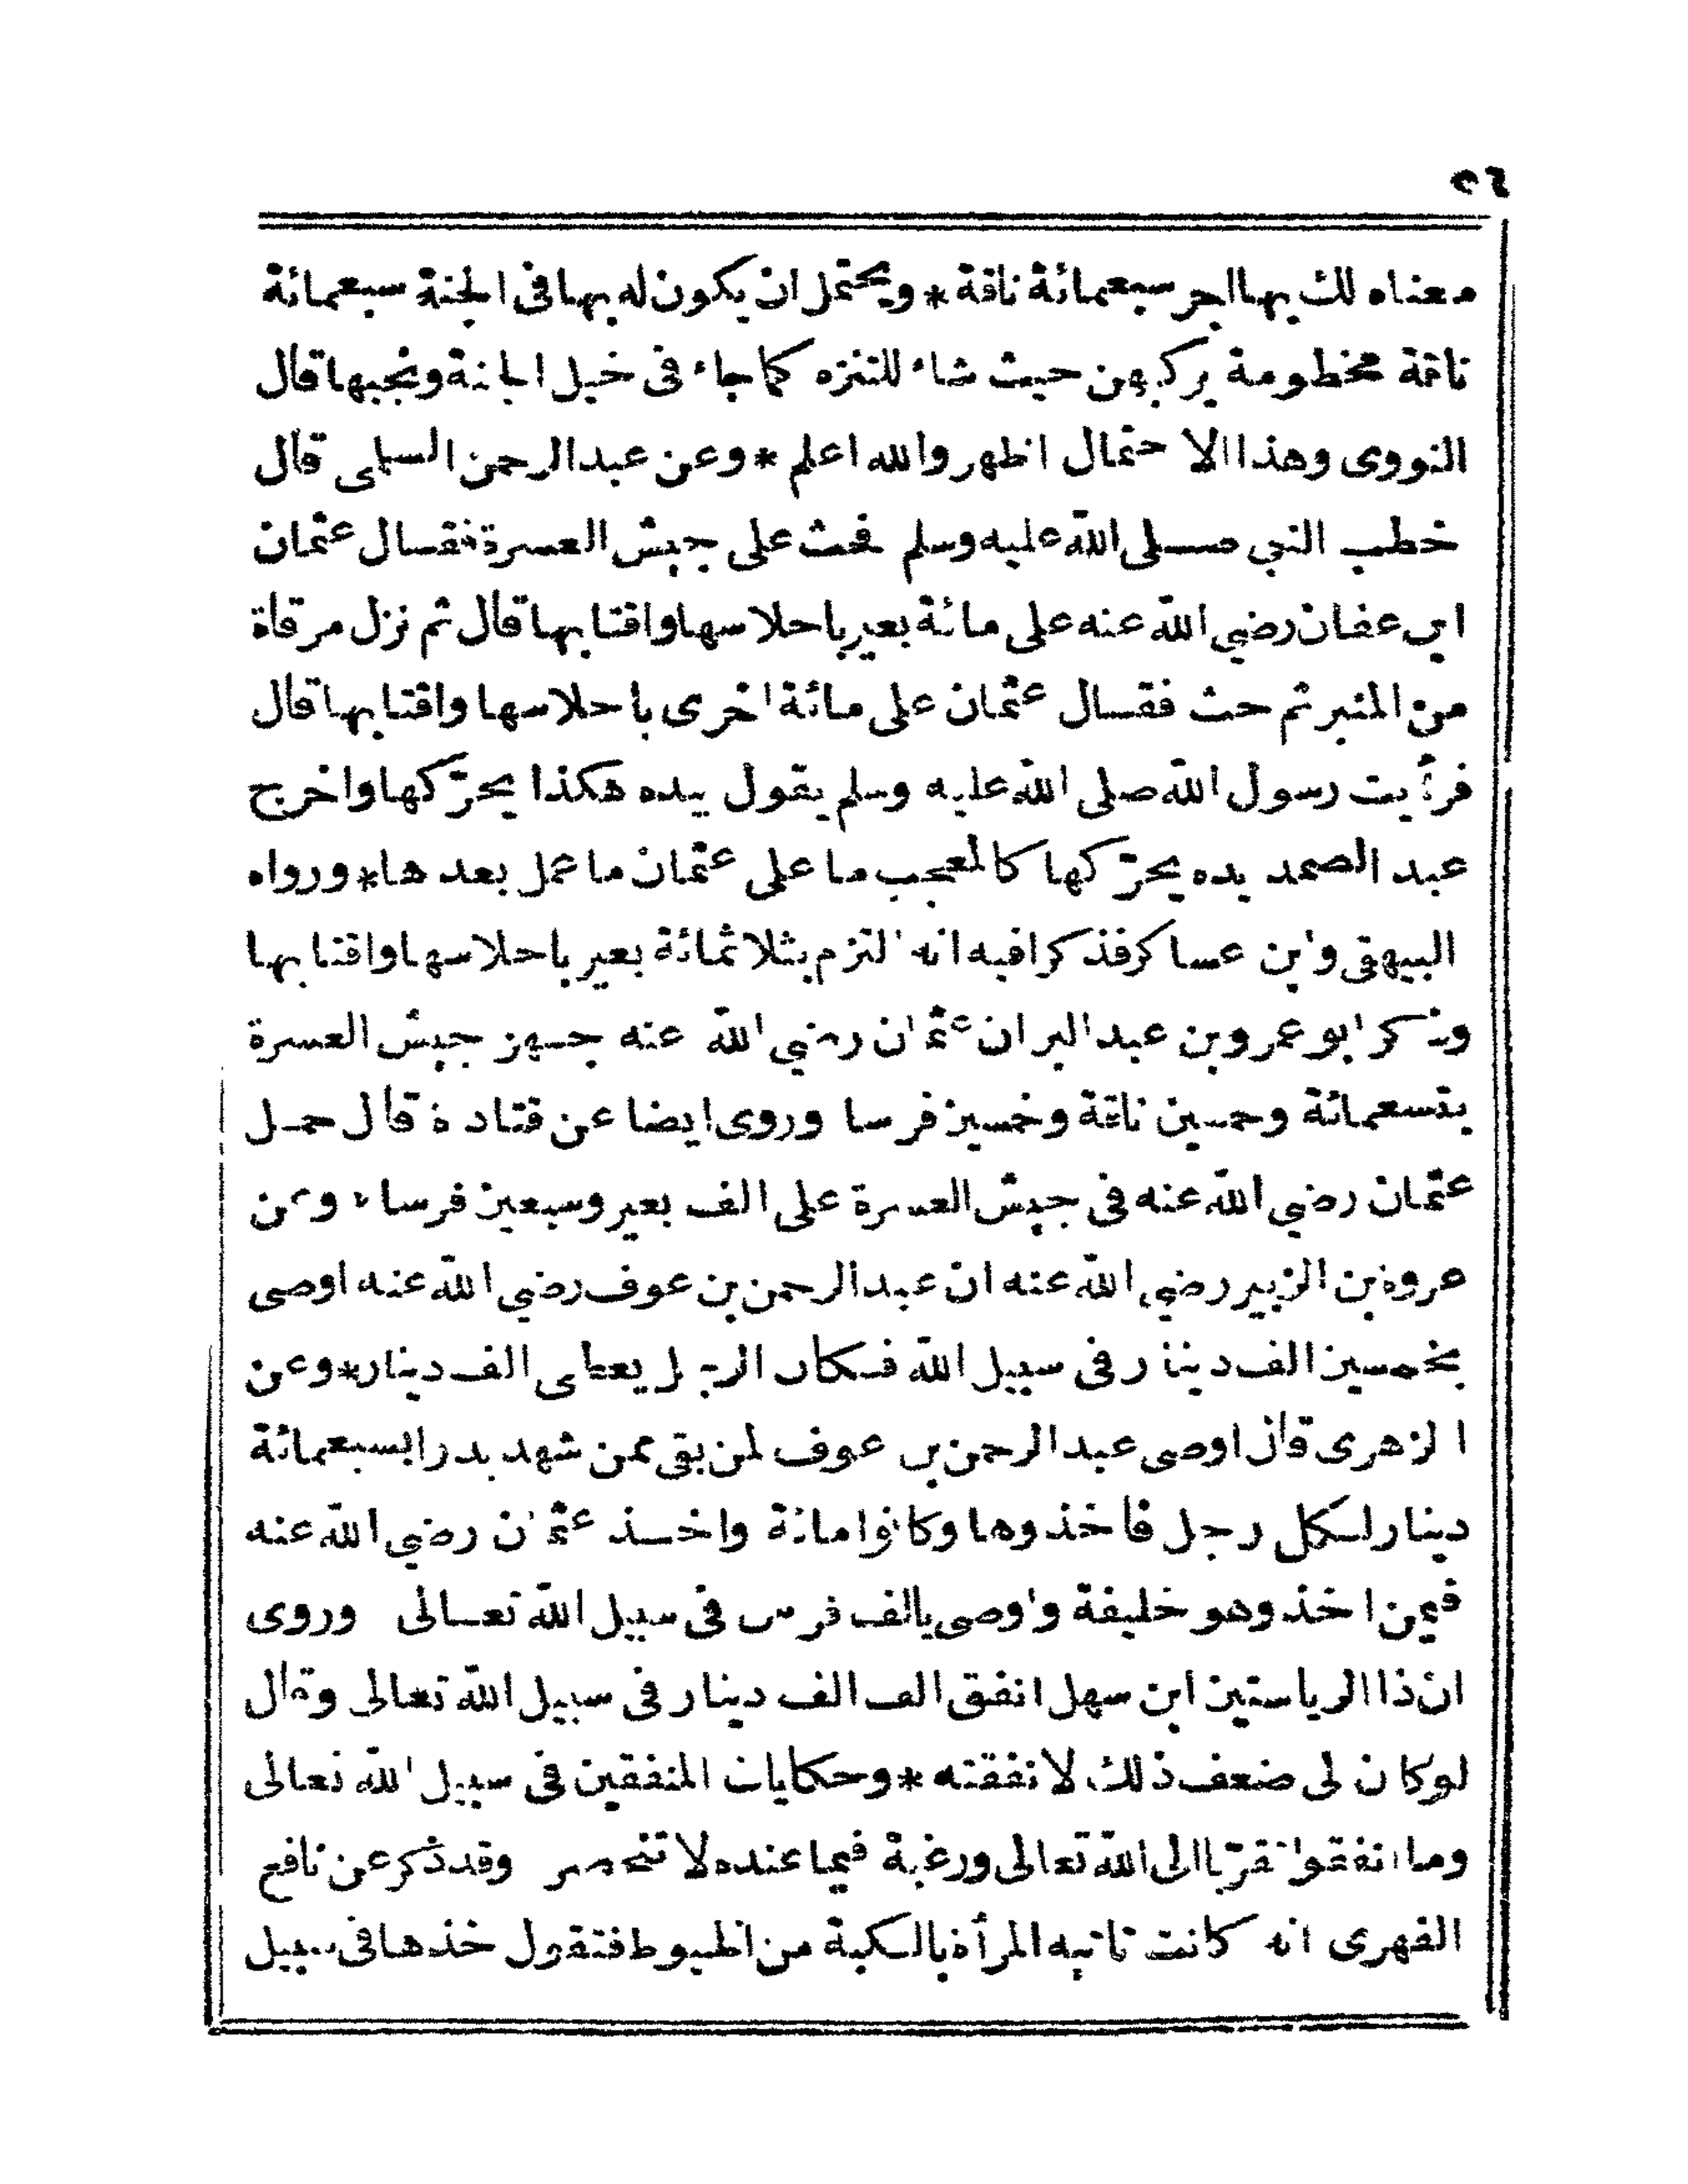 ٥٤
معناه لك بها اجر سبعمائة ناقة * ويحتمل ان يكون له بها فى الجنة سبعمائة
ناقة مخطومة يركبهن حيث شاء للتنزه كما جاء فى خيل الجنة ونجبها قال
النووى وهذا الاحتمال اظهر والله اعلم * وعن عبد الرحمن السلمى قال
خطب النبى صلى الله عليه وسلم فحث على جيش العسرة فقال عثمان
ابن عفان رضي الله عنه على مائة بعير باحلاسها واقتابها قال ثم نزل مرقاة
من المنبر ثم حث فقال عثمان على مائة اخرى باحلاسها واقتابها قال
فرأيت رسول الله صلى الله عليه وسلم يقول بيده هكذا يحرّكها واخرج
عبد الصمد يده يحرّكها كالمعجب ما على عثمان ما عمل بعد ها * ورواه
البيهقى وابن عساكر فذكرا فيه انه التزم بثلاثمائة بعير باحلاسها واقتابها
وذكر ابو عمرو بن عبد البر ان عثمان رضي الله عنه جهز جيش العسرة
بتسعمائة وخمسين ناقة وخمسين فرسا وروى ايضا عن قتادة قال حمل
عثمان رضي الله عنه فى جيش العسرة على الف بعير وسبعين فرسا * وعن
عروة بن الزبير رضي الله عنه ان عبد الرحمن بن عوف رضي الله عنه اوصى
بخمسين الف دينار فى سبيل الله فكان الرجل يعطى الف دينار * وعن
الزهرى قال اوصى عبد الرحمن بن عوف لمن بقى ممن شهد بدرا بسبعمائة
دينار لكل رجل فاخذوها وكانوا مائة واخذ عثمان رضي الله عنه
فيمن اخذ وهو خليفة واوصى بالف فرس فى سبيل الله تعالى وروى
ان ذا الرياستين ابن سهل انفق الف الف دينار فى سبيل الله تعالى وقال
لو كان لى ضعف ذلك لانفقته * وحكايات المنفقين فى سبيل الله تعالى
وما انفقوا تقرّبا الى الله تعالى ورغبة فيما عنده لا تنحصر وقد ذكر عن نافع
الفهرى انه كانت تاتيه المرأة بالكبة من الخيوط فتقول خذها فى سبيل